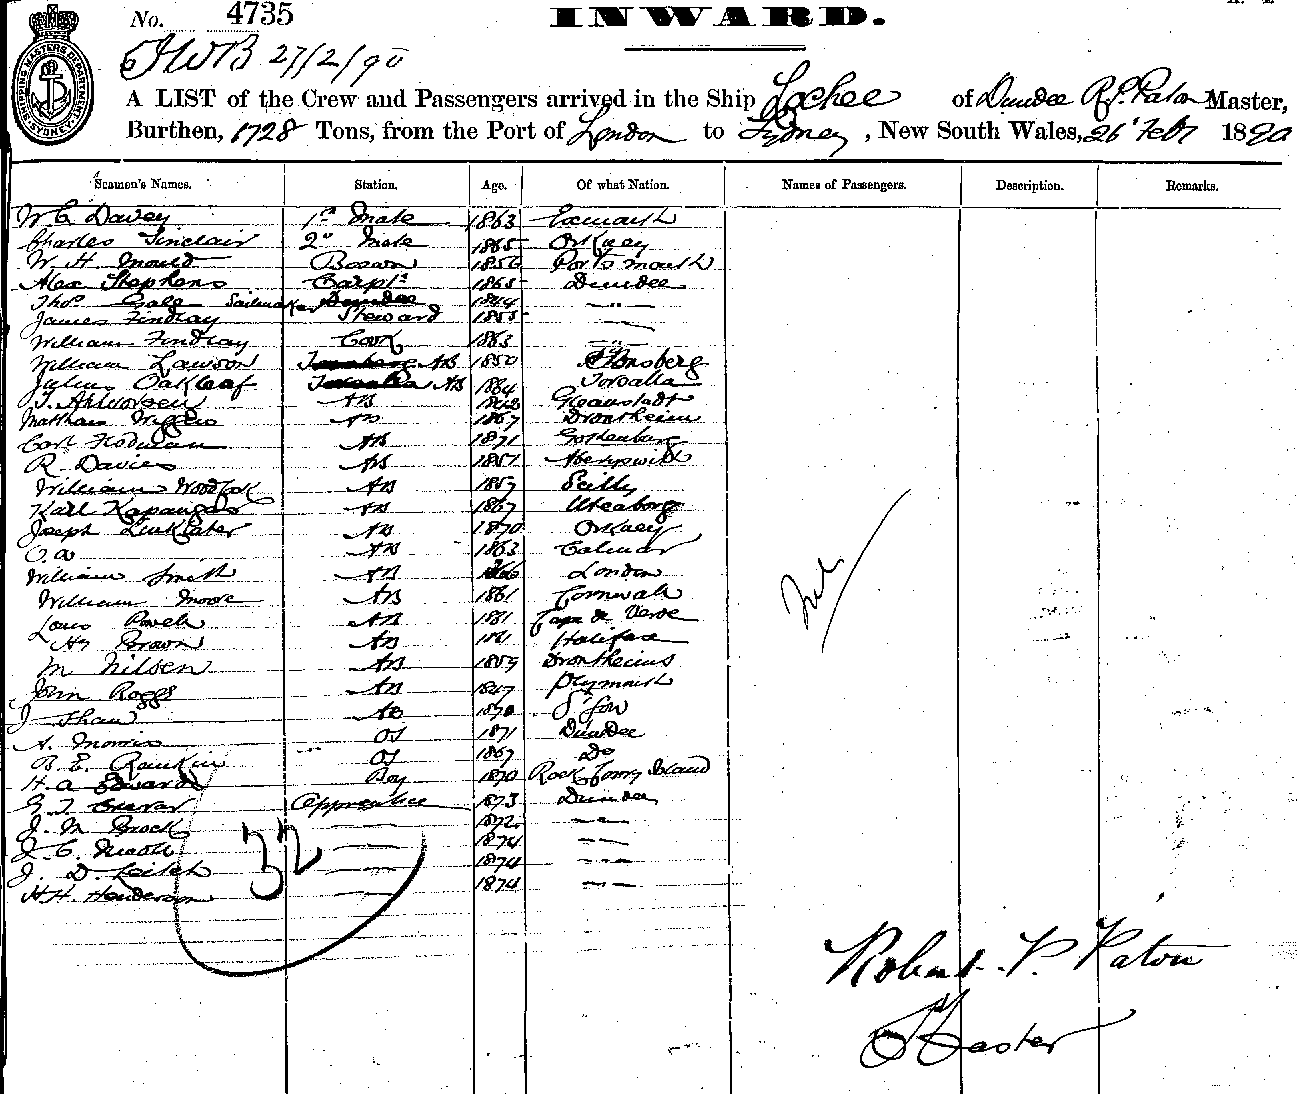 No. 4735
INWARD.
SHIPPING MASTERS DEPARTMENT SYDNEY
JWB 27/2/90
A LIST of the Crew and Passengers arrived in the Ship Lochee of Dundee R. P. Paton Master,
Burthen, 1728 Tons, from the Port of London to Sydney, New South Wales, 26 Feby 1890
Seamen's Names. Station. Age. Of what Nation. Names of Passengers. Description. Remarks.
W C Davey 1st Mate 1863 Exmouth
Charles Sinclair 2nd Mate 1865 Orkney
W. H. Mould Bosun 1856 Portsmouth
Alex Stephens Carptr 1865 Dundee
Thos Gale Sailmaker Dundee 1844 — " —
James Findlay Steward 1855 —
William Findlay Cook 1863 — " —
William Lawson AB 1850 Tonsberg
Julius Oakleaf AB 1864 Torvalla
T. AB
Matthew AB 1867 Drontheim
Carl AB 1871 Gothenburg
R Davies AB 1857
William Woodcock AB 1859 Scilly
Karl AB 1867 Uleaborg
Joseph Linklater AB 1870 Orkney
AB 1863 Calmar
William Smith AB London
William Moore AB 1861 Cornwall
Louis AB 1861 Cape de Verde
Hy Brown AB 1861 Halifax
M Nilsen AB 1859 Drontheim
John Roggs AB 1847 Plymouth
J Shaw AB 1870
A. Morris OS 1871 Dundee
R. E. Rankin OS 1867 Do
H. A Edwards Boy 1870 Rock Ferry Island
G. T. Apprentice 1873 Dundee
J. M Brock — 1872 — " —
J. C. Nicoll — 1874 — " —
J. D. Leitch — 1874 — " —
H H. Henderson — 1874 — " —
32
Nil
Robert P. Paton
Master